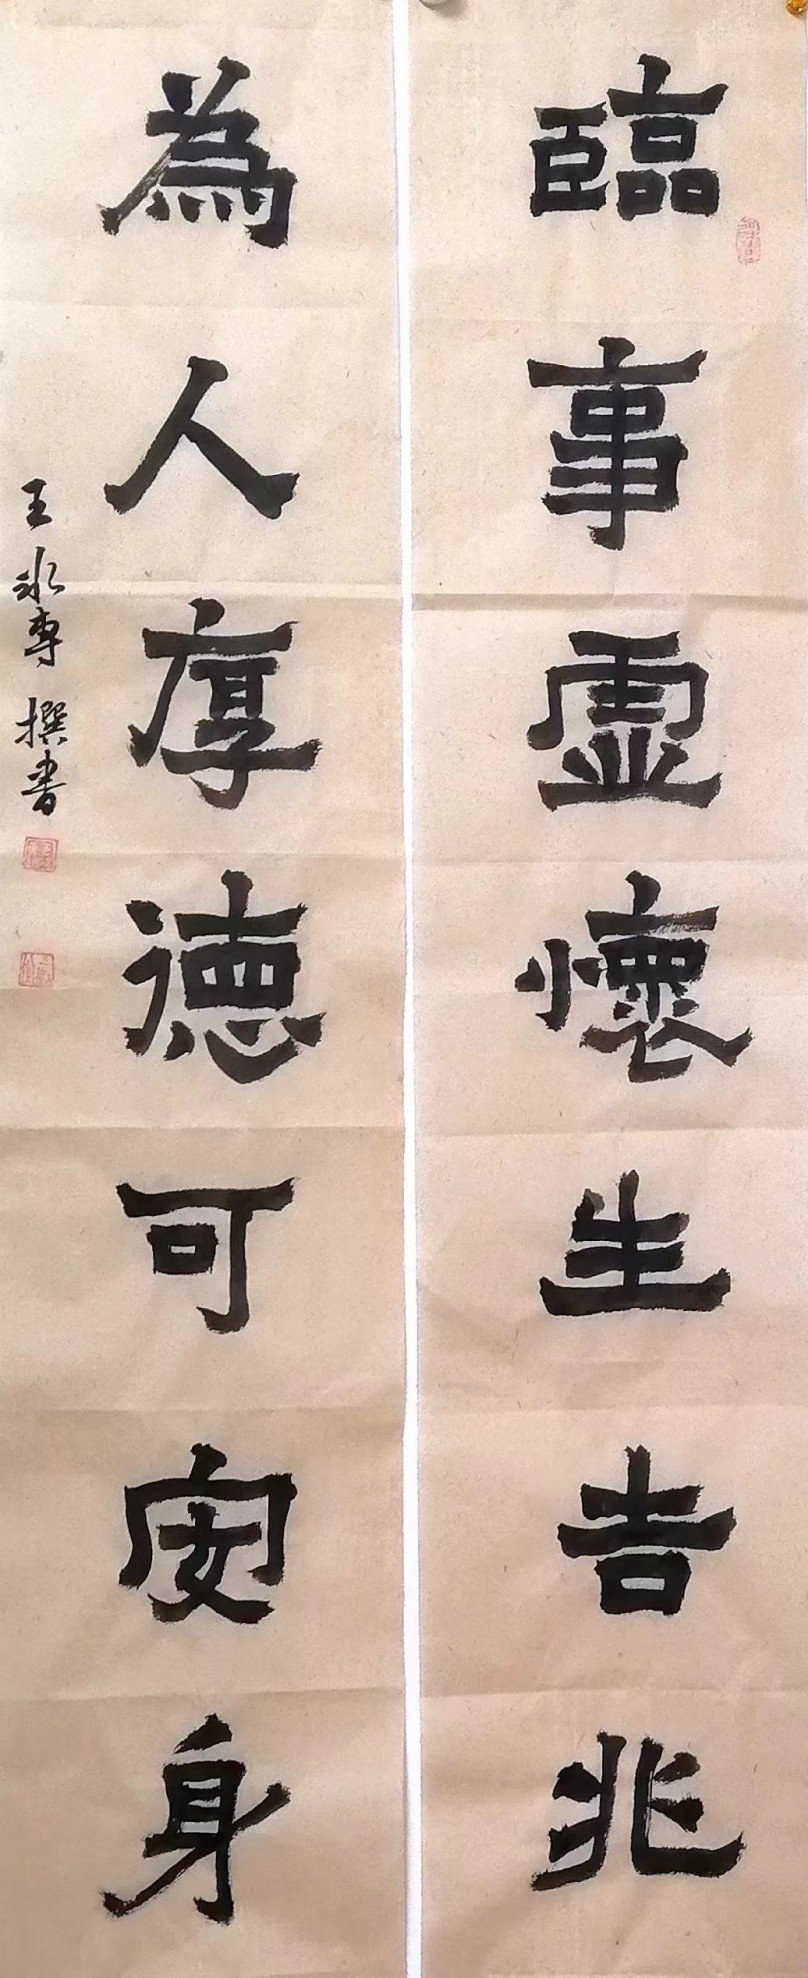 臨事虛懷生吉兆
為人厚德可安身
王冰專撰書